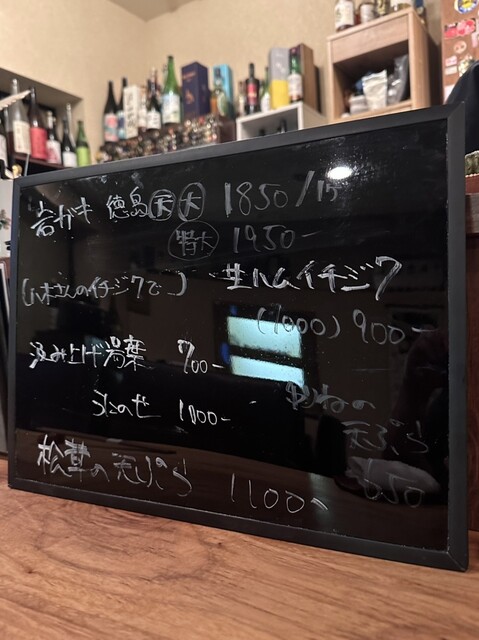 岩ガキ 徳島 天 大 1850/1コ
特大 1950-
(八木さんのイチジクで) 生ハムイチジク
(1000) 900-
汲み上げ湯葉 700-
うにのせ 1000-
天ぷら
650
松茸の天ぷら 1100-